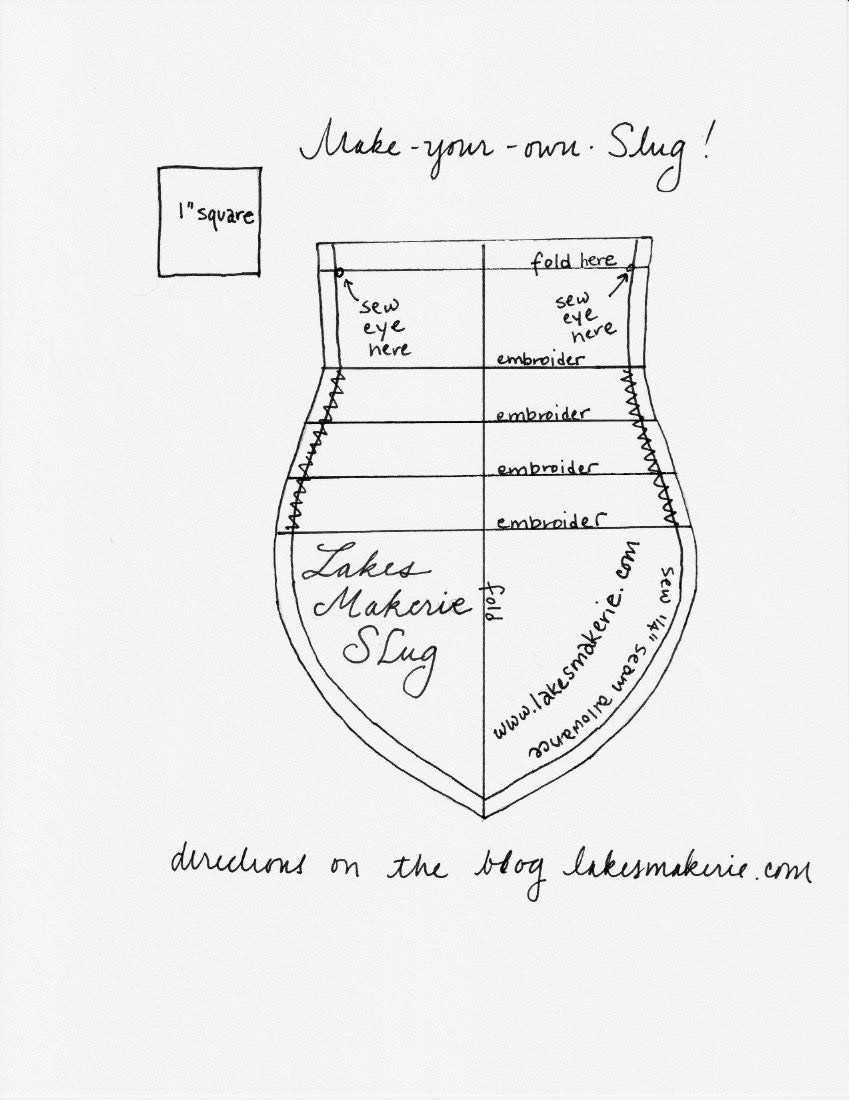 Make-your-own. Slug!
1" square
fold here
sew
eye
here
sew
eye
here
embroider
embroider
embroider
embroider
Lakes
Makerie
SLug
fold
www.lakesmakerie.com
sew 1/4" seam allowance
directions on the blog lakesmakerie.com